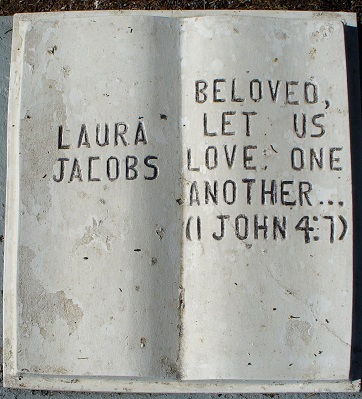 LAURA
JACOBS
BELOVED,
LET US
LOVE ONE
ANOTHER...
(1 JOHN 4:7)